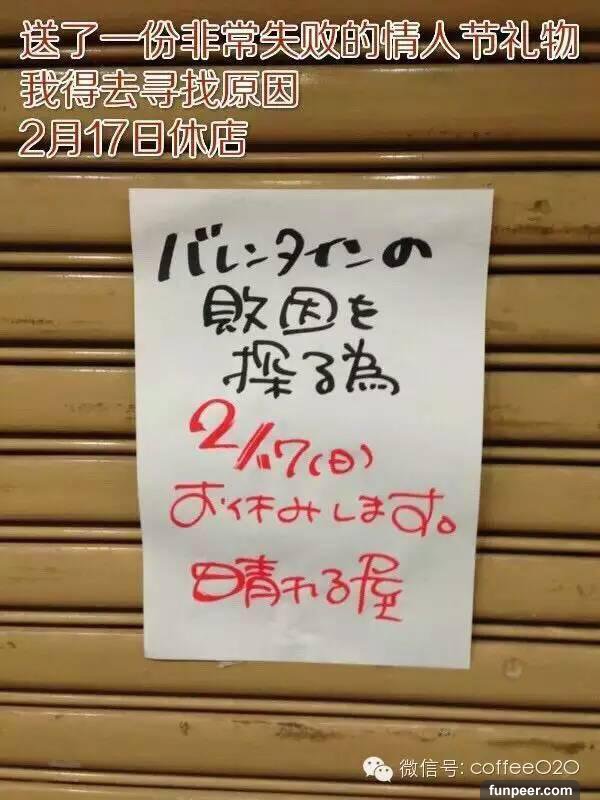 送了一份非常失败的情人节礼物
我得去寻找原因
2月17日休店
バレンタインの
敗因を
探る為
2/17(日)
お休みします。
晴れる屋
微信号: coffeeO2O
funpeer.com